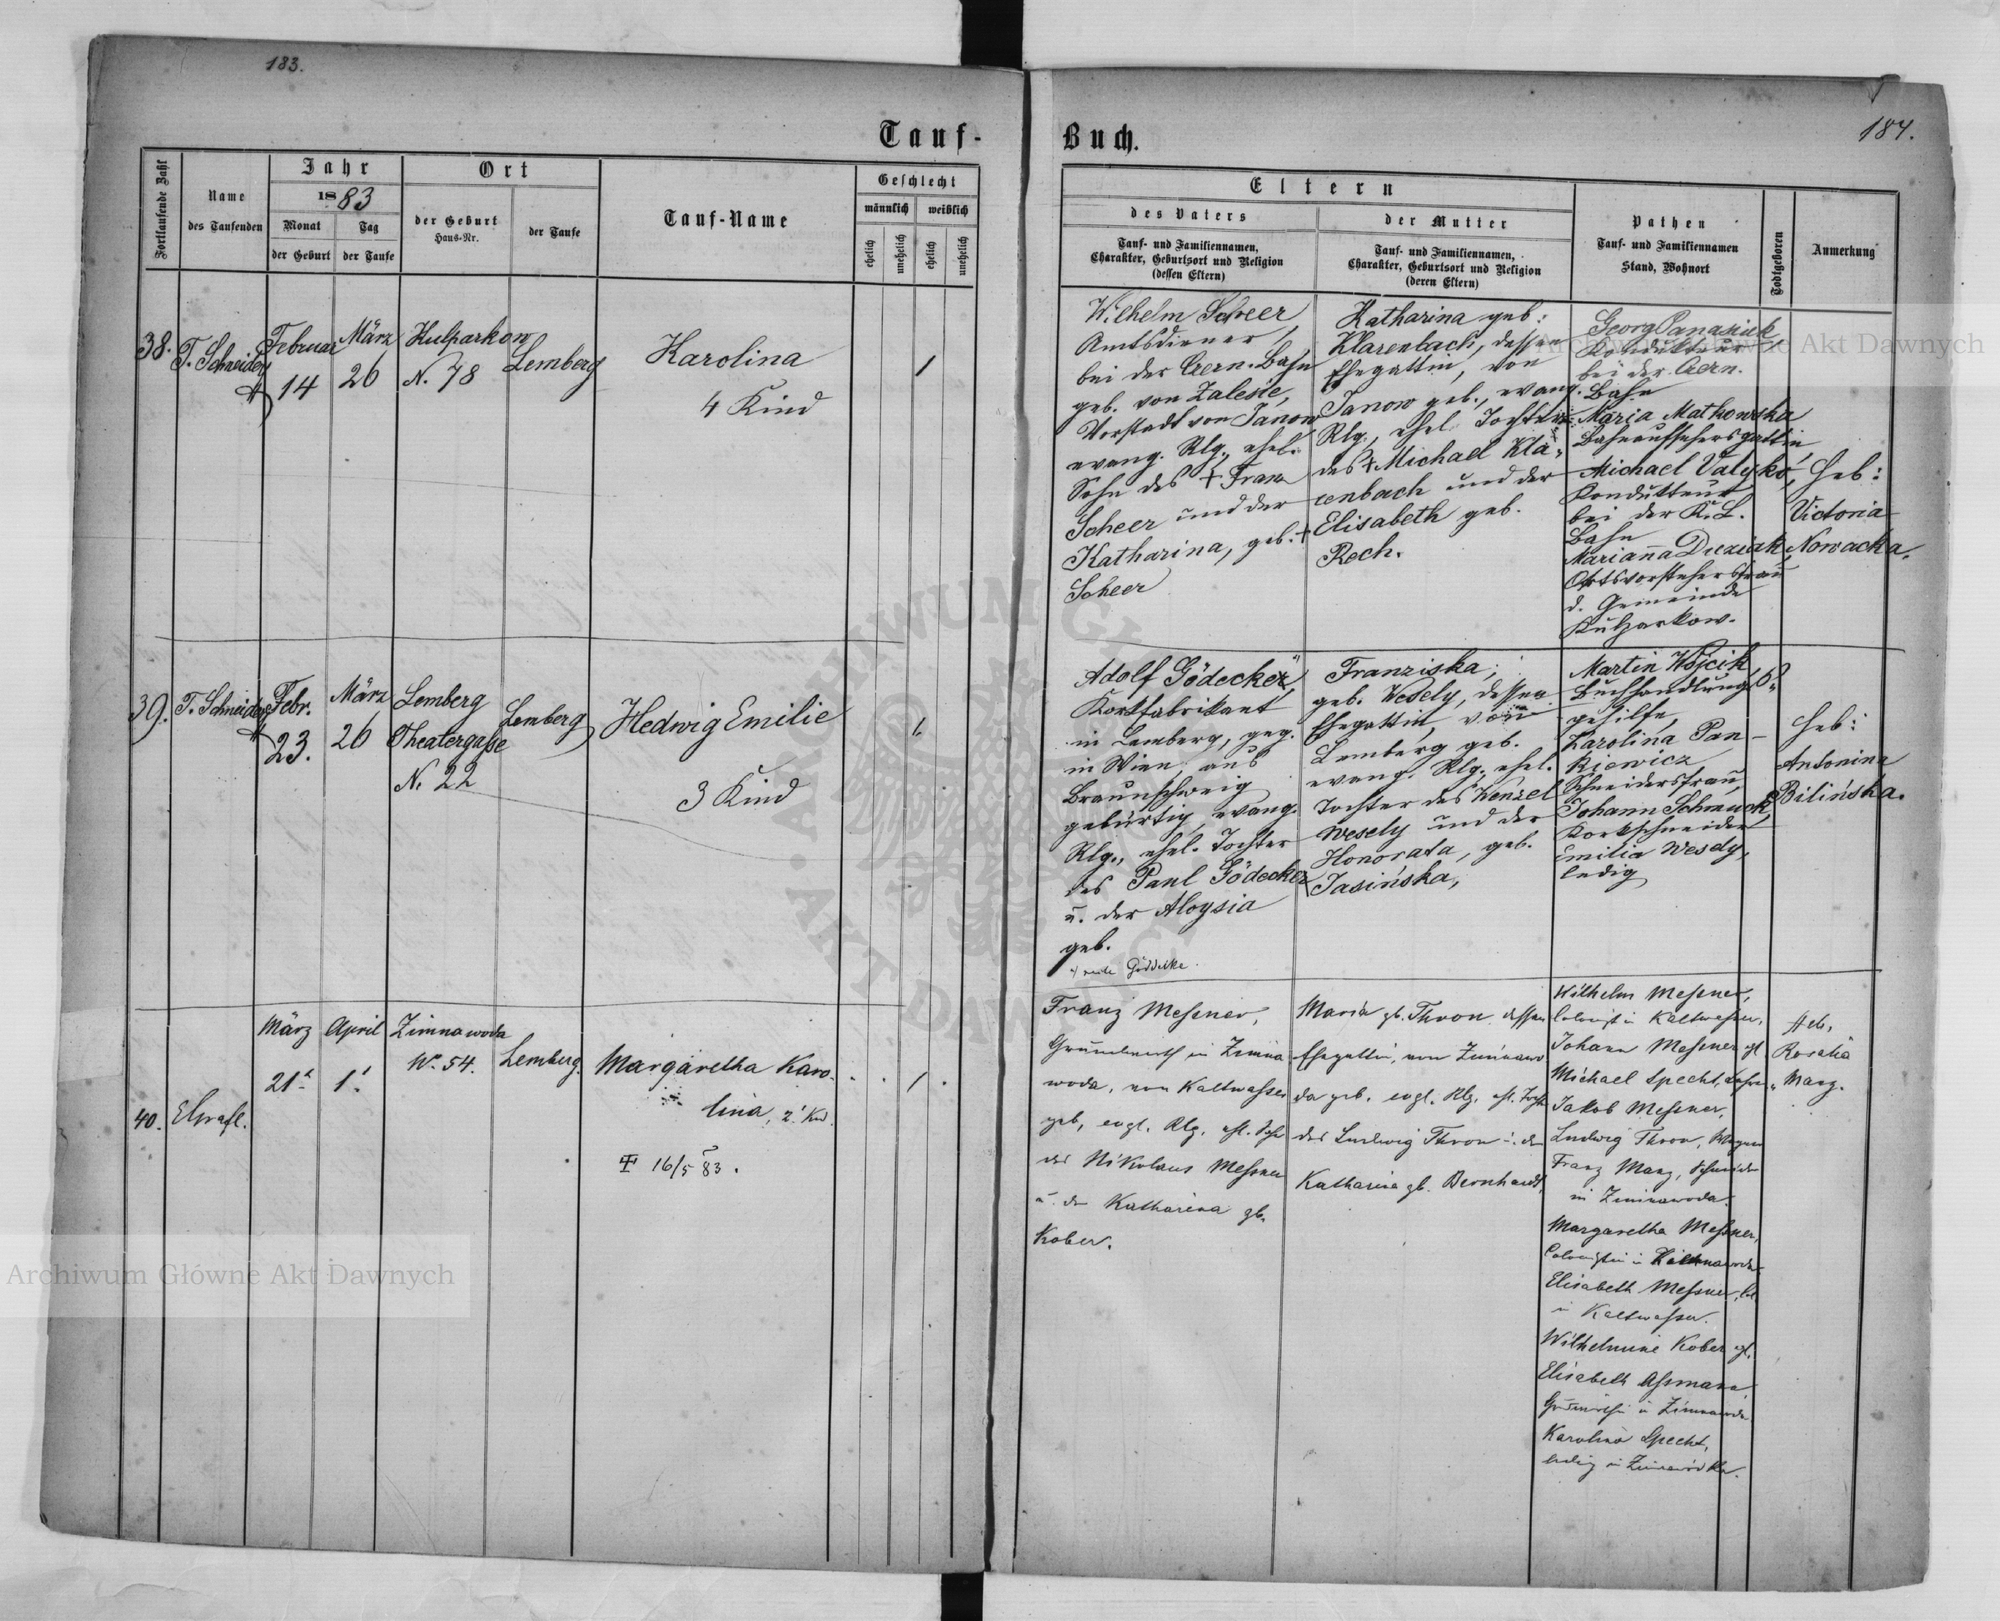 183.
184.
Tauf-
Buch.
Fortlaufende Zahl
Name
des Taufenden
Jahr
1883
Monat
der Geburt
Tag
der Taufe
Ort
der Geburt
Haus-Nr.
der Taufe
Tauf-Name
Geschlecht
männlich
weiblich
ehelich
unehelich
ehelich
unehelich
Eltern
des Vaters
Tauf- und Familiennamen,
Charakter, Geburtsort und Religion
(dessen Eltern)
der Mutter
Tauf- und Familiennamen,
Charakter, Geburtsort und Religion
(deren Eltern)
Pathen
Tauf- und Familiennamen
Stand, Wohnort
Todtgeboren
Anmerkung
38.
T. Schneider
Februar
14
März
26
Kulparkow
N. 78
Lemberg
Karolina
4 Kind
1
Wilhelm Scheer
Amtsdiener
bei der Czern. Bahn
geb. von Zalesie,
Vorstadt von Janow
evang. Rlg., ehel.
Sohn des + Franz
Scheer und der
Katharina, geb. +
Scheer
Katharina geb:
Klarenbach, dessen
Ehegattin, von
Janow geb., evang.
Rlg., ehel. Tochter
des + Michael Kla-
renbach und der
Elisabeth geb.
Rech.
Georg Panasiuk
Kondukteur
bei der Czern.
Bahn
Maria Mathowska
Bahnaufsehersgattin
Michael Valyko,
Kondukteur
bei der K. L.
Bahn
Marianna Duziak,
Ortsvorstehersfrau
d. Gemeinde
Kulparkow.
Heb:
Victoria
Nowacka.
39.
T. Schneider
Febr.
23.
März
26
Lemberg
Theatergasse
N. 22
Lemberg
Hedwig Emilie
3 Kind
1
Adolf Gödecker
Korkfabrikant
in Lemberg, geg.
in Wien aus
Braunschweig
gebürtig, evang.
Rlg., ehel. Tochter
des Paul Gödecker
u. der Aloysia
geb.
Franziska,
geb. Wesely, dessen
Ehegattin, von
Lemberg geb.
evang. Rlg., ehel.
Tochter des Wenzel
Wesely und der
Honorata, geb.
Jasińska,
Martin Wojcik
Buchhandlungs-
gehilfe,
Karolina Pan-
kiewicz
Schneidersfrau,
Johann Schmuck,
Korkschneider
Emilia Wesely,
ledig
Heb:
Antonina
Bilińska.
40.
EGrafl.
März
21.
April
1.
Zimnawoda
N. 54.
Lemberg.
Margaretha Karo-
lina, 2. Kd.
16/5 83.
1
Franz Messner,
Grundwirth in Zimna
woda, von Kaltwasser
geb, evgl. Rlg. ehl. Sohn
des Nikolaus Messner
u. der Katharina gb.
Kober.
Maria gb. Thron dessen
Ehegattin, von Zimnawo
da geb. evgl. Rlg. ehl. Tocht
des Ludwig Thron u. der
Katharina gb. Bernhardt.
Wilhelm Messner,
Colonist in Kaltwasser,
Johann Messner
Michael Specht,
Jakob Messner,
Ludwig Thron,
Franz Manz, Schneider
in Zimnawoda.
Margaretha Messner,
Colonistin in Zimnawoda
Elisabeth Messner,
in Kaltwasser.
Wilhelmine Kober
Elisabeth Assmann
Grundwirthin in Zimnawoda
Karolina Specht,
ledig in Zimnawoda.
Heb.
Rosalia
Manz.
Archiwum Główne Akt Dawnych
Archiwum Główne Akt Dawnych